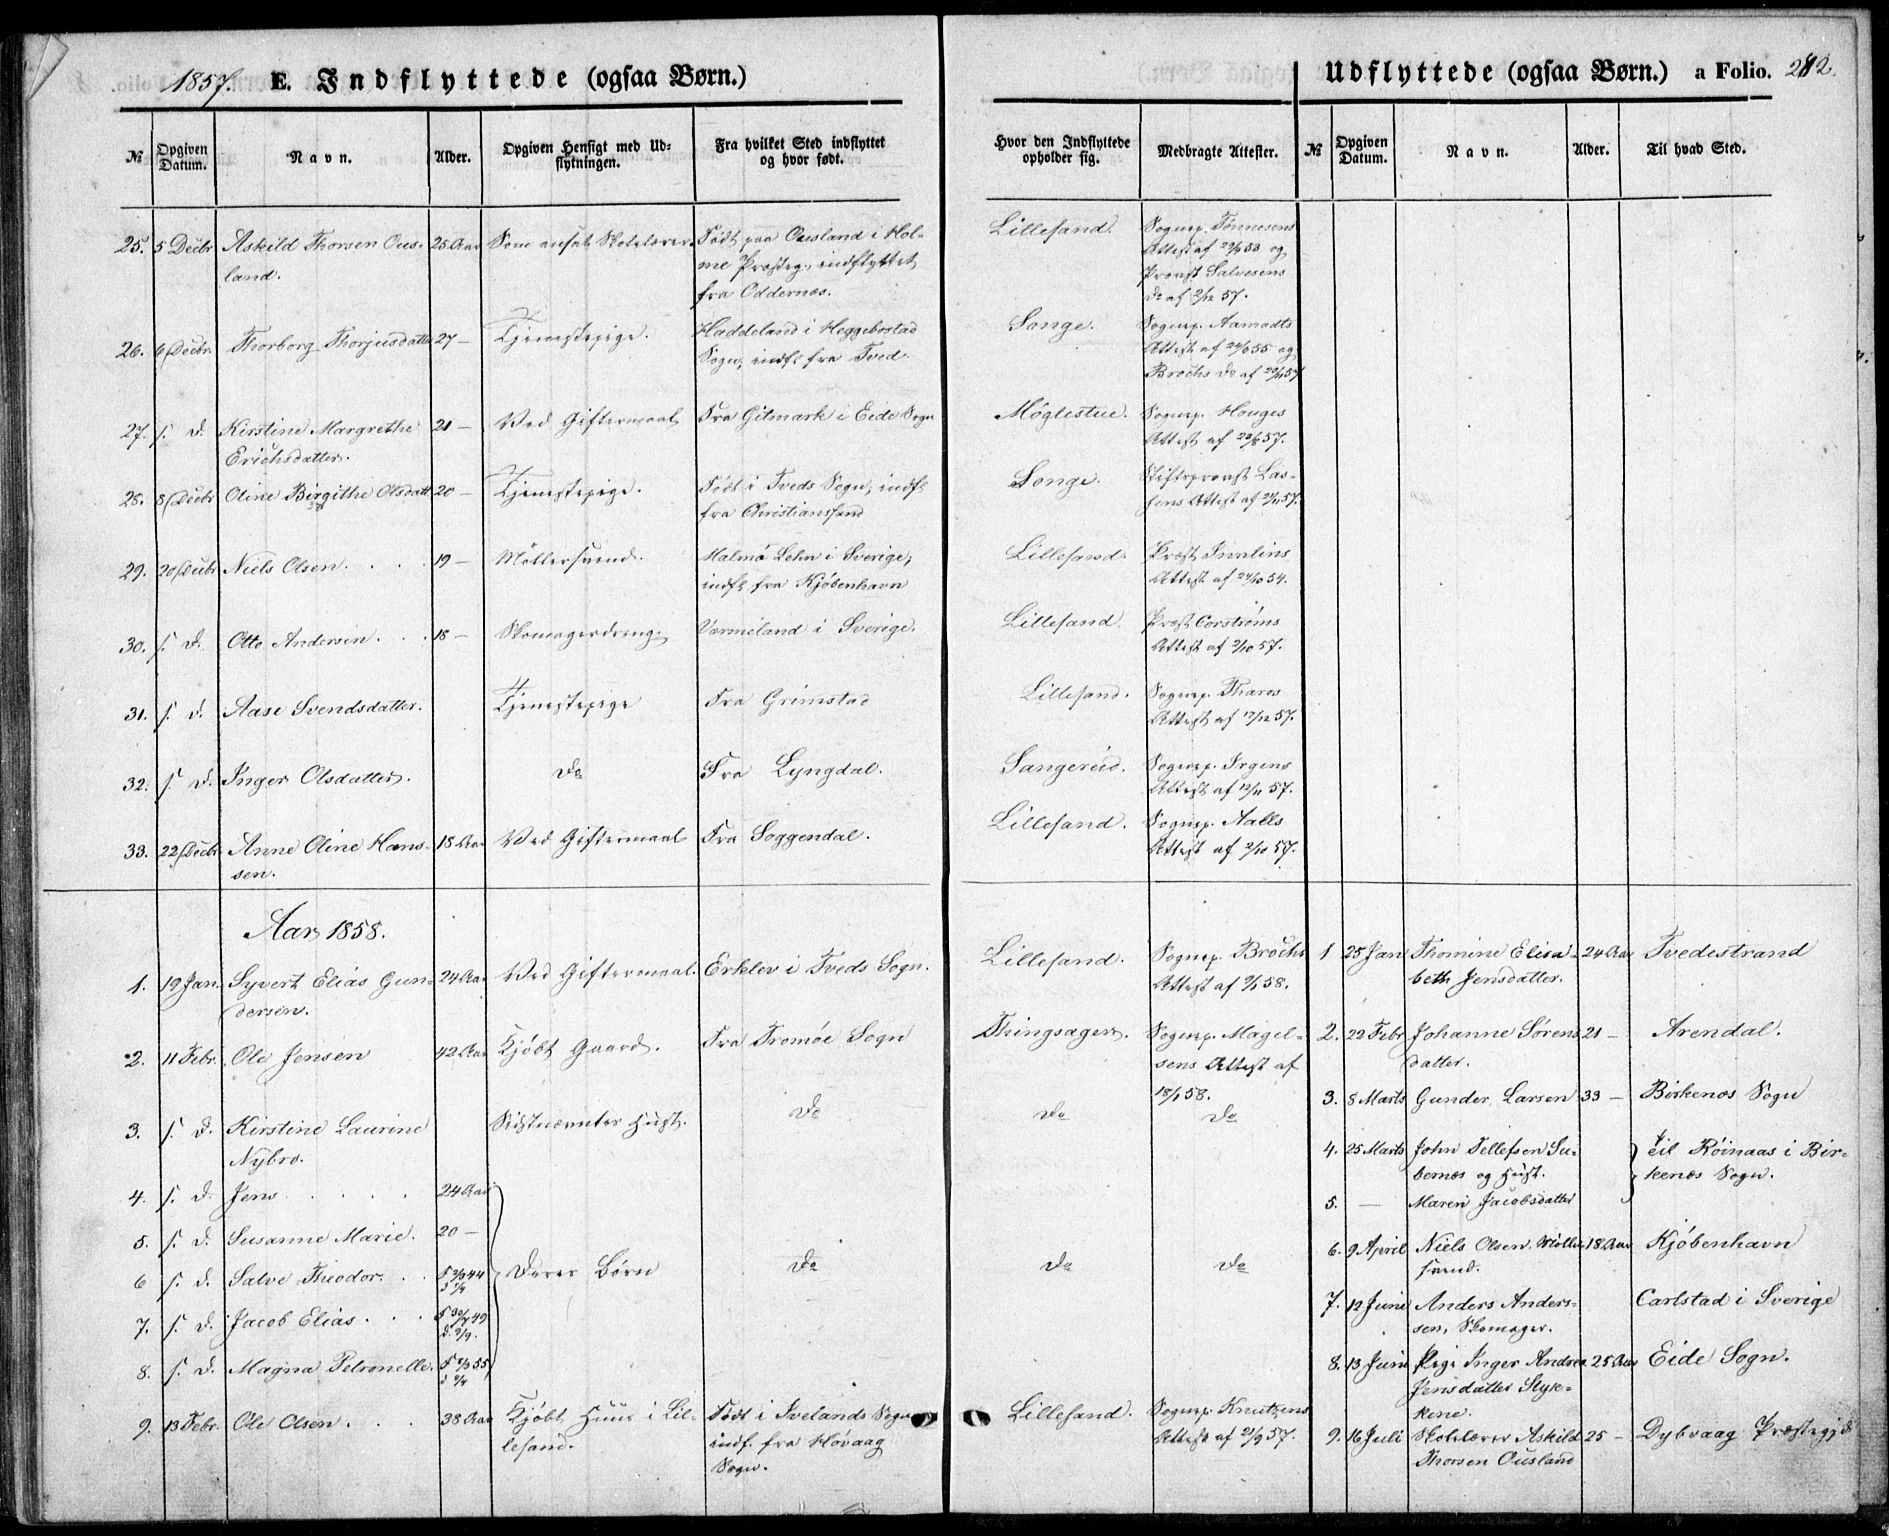 1857. E. Indflyttede (ogsaa Børn.)
Udflyttede (ogsaa Børn.) a Folio. 212.
№ Opgiven Datum. Navn. Alder. Opgiven Hensigt med Udflytningen. Fra hvilket Sted indflyttet og hvor født.
Hvor den Indflyttede opholder sig. Medbragte Attester. № Opgiven Datum. Navn. Alder. Til hvad Sted.
25. 5 Decbr Askild Thorsen Ous- 25 Aar Som ansat Skolelærer Født paa Ousland i Hol-
land. me Præsteg., indflyttet
fra Oddernæs.
Lillesand. Sognep. Tønnesens
Attest af 53 og
Provst Salvesens
Do af 2/12 57.
26. 6 Decbr. Thorborg Thorjusdatter 27 — Tjenestepige. Haddeland i Heggebostad
Sogn, indfl fra Tved.
Songe. Sognep. Aamodts
Attest af 55 og
Brochs Do af 57
27. s. d. Kirstine Margrethe 21 — Ved Giftermaal Fra Gitmark i Eide Sogn
Erichsdatter.
Møglestue. Sognep. Houges
Attest af 57.
28. 8 Decbr Oline Birgithe Olsdatt 20 — Tjenestepige. Født i Tveds Sogn, indfl
fra Christianssand
Songe. Stiftsprovst Las-
sens Attest af 57.
29. 20 Decbr Niels Olsen. 19 — Møllersvend. Malmø Lehn i Sverige,
indfl fra Kjøbenhavn
Lillesand. Præst
Attest af 24/10 54.
30. s. d. Otto Andersen. 18 — Skomagerdreng. Vermeland i Sverige.
Lillesand. Præst Corstrøms
Attest af 2/10 57.
31. s. d. Aase Svendsdatter. Tjenestepige Fra Grimstad
Lillesand. Sognep. Tharos
Attest af 17/12 57.
32. s. d. Inger Olsdatter. Do Fra Lyngdal.
Sangereid. Sognep. Irgens
Attest af 12/11 57.
33. 22 Decbr Anne Oline Hans- 18 Aar Ved Giftermaal Fra Soggendal.
sen.
Lillesand. Sognep. Aalls
Attest af 2/10 57.
Aar 1858.
1. 19 Jan. Syvert Elias Gun- 24 Aar Ved Giftermaal. Erklev i Tveds Sogn.
dersen.
Lillesand. Sognep. Brochs
Attest af 58.
2. 11 Febr. Ole Jensen 42 Aar Kjøbt Gaard. Fra Tromøe Sogn
Thingsager. Sognep. Magel-
sens Attest af
18/1 58.
3. s. d. Kirstine Laurine Sidstnævntes Hust. Do
Nybro.
Do Do
4. s. d. Jens 24 Aar
5. s. d. Susanne Marie. 20 —
6 s. d. Salve Theodor. 44 Deres Børn Do
Do Do
7. s. d. Jacob Elias. 49
8. s. d. Magna Petronelle. 55
9. 13 Febr. Ole Olsen. 38 Aar Kjøbt Huus i Lil- Født i Ivelands Sogn
lesand. indf. fra Høvaag
Sogn.
Lillesand. Sognep. Knutzens
Attest af 21/9 57.
1 25 Jan Thomine Elisa- 24 Aar Tvedestrand
beth Jensdatter.
2. 22 Febr Johanne Sørens 21 — Arendal.
datter.
3. 8 Marts Gunder Larsen 33 — Birkenæs Sogn
4. 25 Marts John Tellefsen Su- til Røinaas i Bir-
bernæs og Hust. kenæs Sogn.
5. — Maren Jacobsdatter
6. 9 April Niels Olsen Møller 18 Aar Kjøbenhavn
svend.
7. 12 Juni Anders Anders- Carlstad i Sverige
sen, Skomager.
8. 13 Juni Pige Inger Andrea 25 Aar Eide Sogn.
Jensdatter Styk-
kene.
9. 16 Juli Skolelærer Askild 25 — Dybvaag Præstegjd
Thorsen Ousland